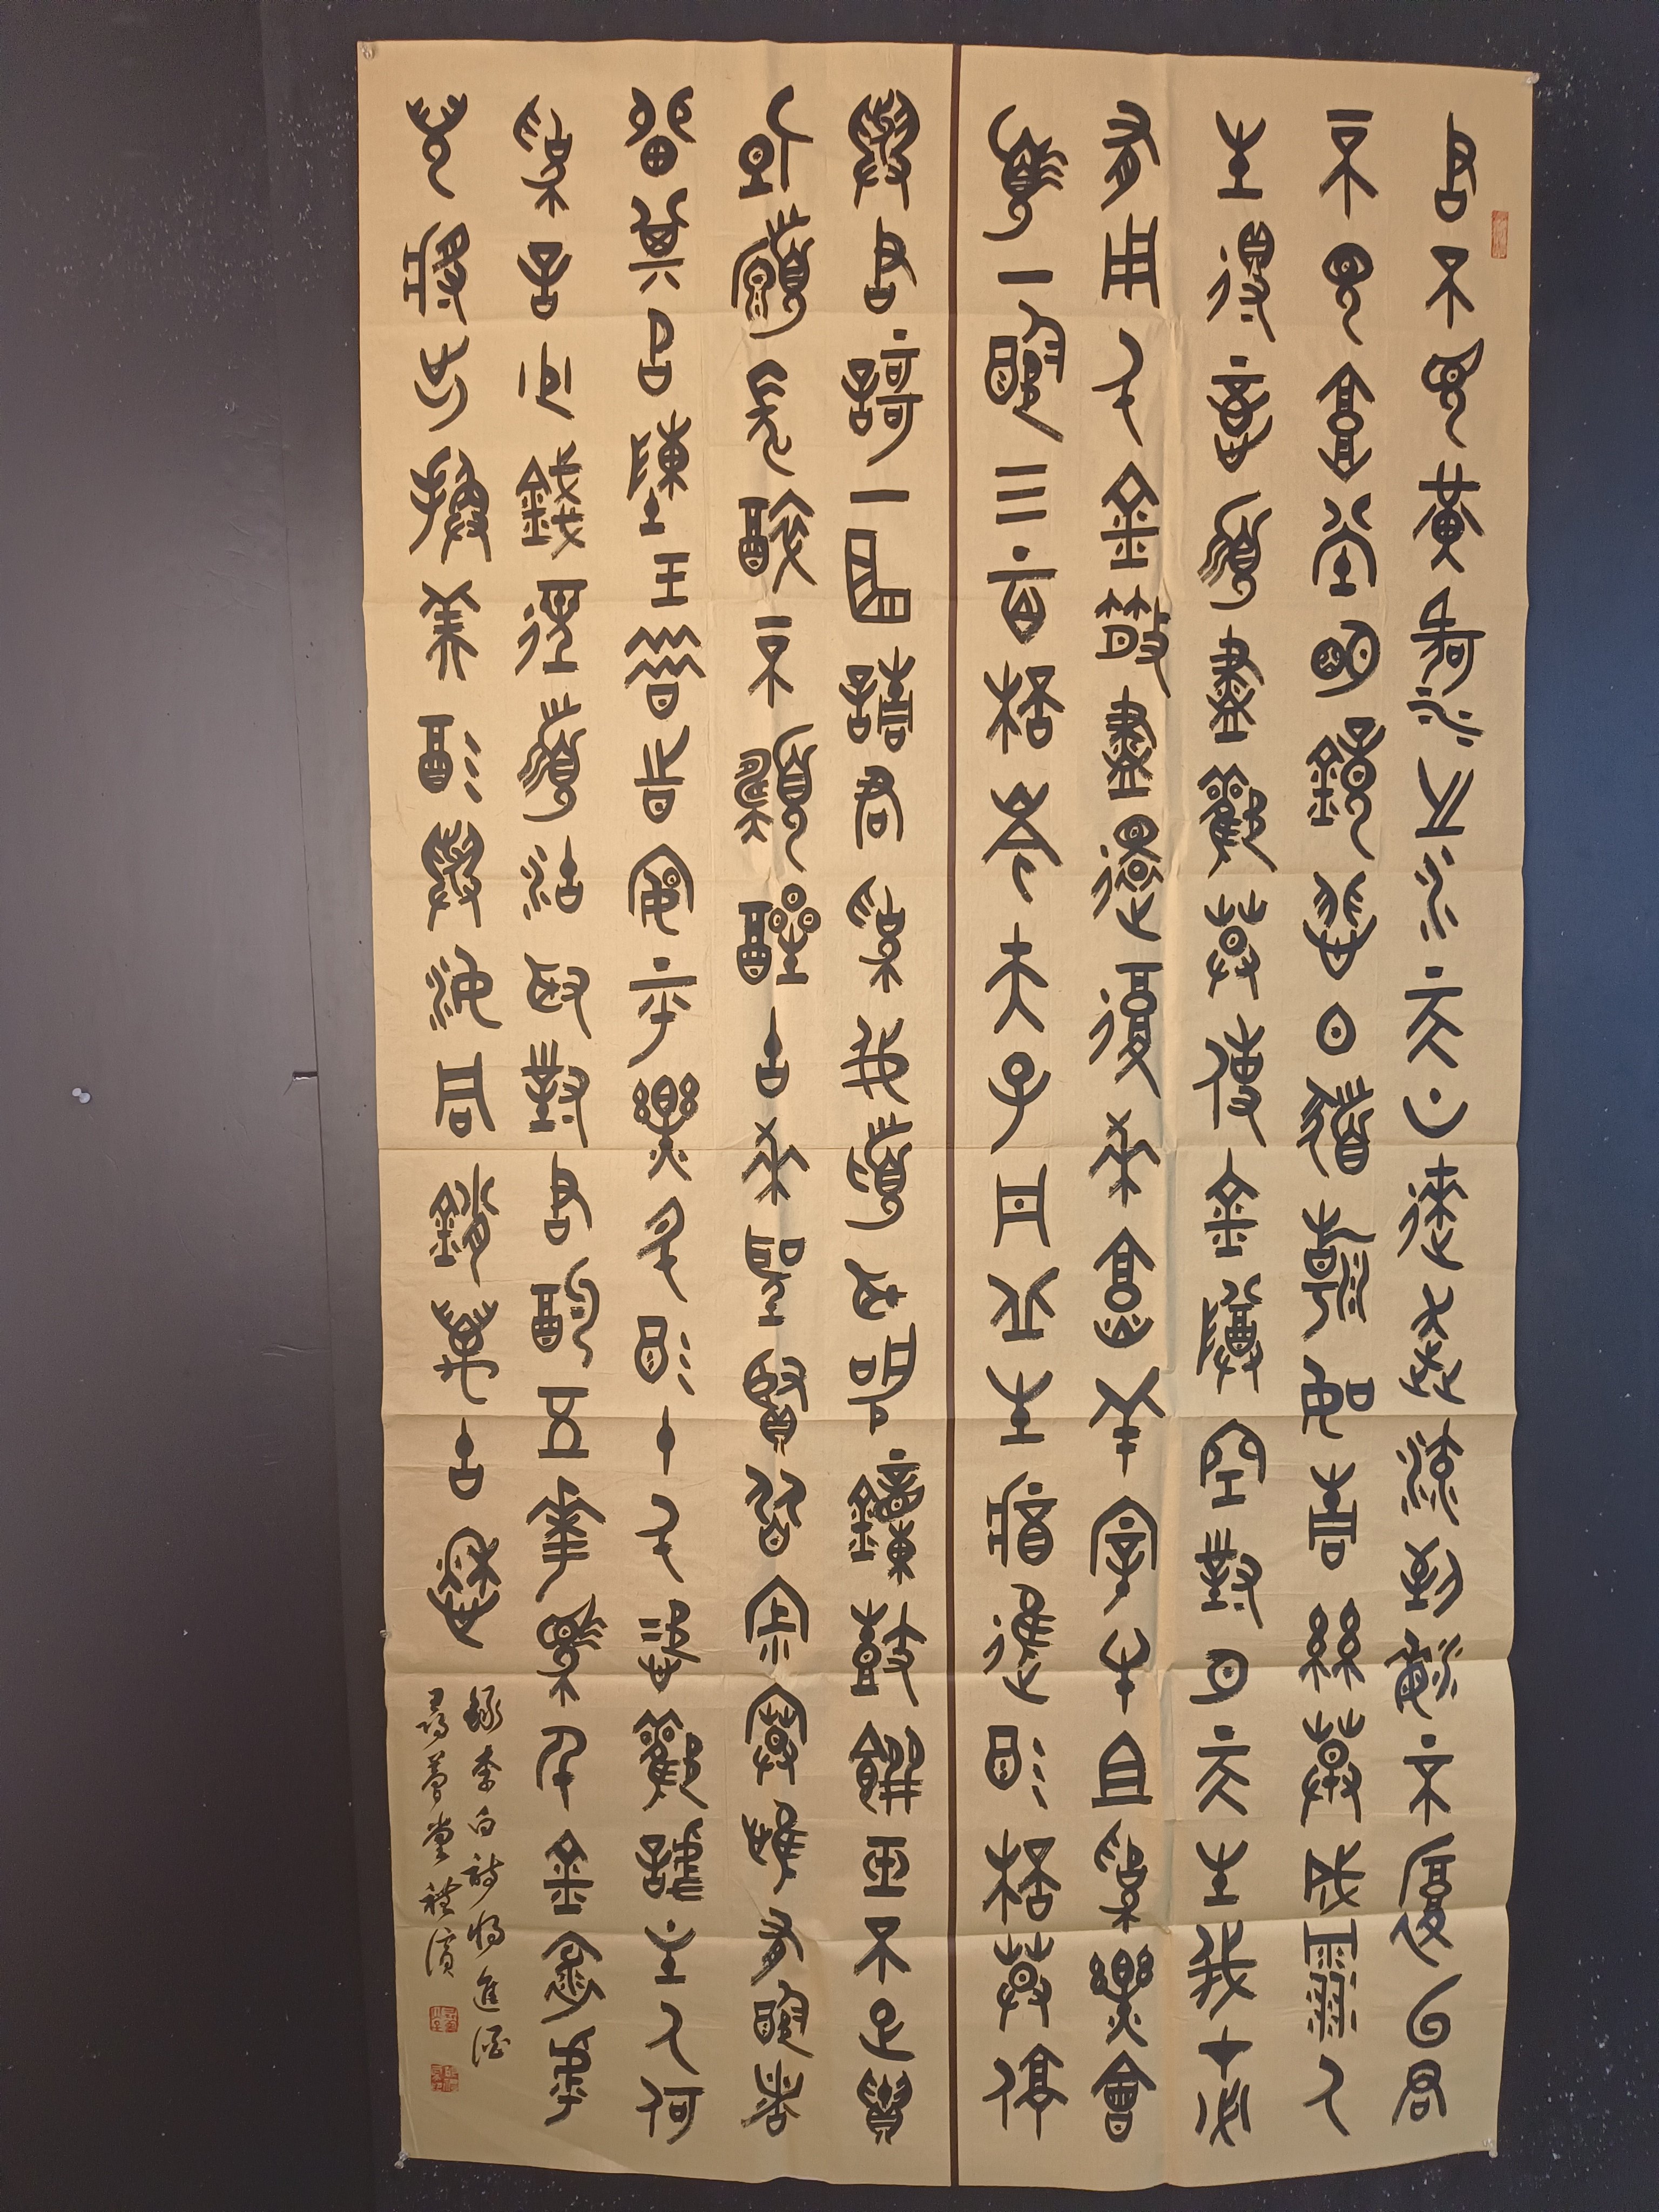 君不見黃河之水天上來奔流到海不復回君
不見高堂明鏡悲白髮朝如青絲暮成雪人
生得意須盡歡莫使金樽空對月天生我才必
有用千金散盡還復來烹羊宰牛且為樂會
須一飲三百杯岑夫子丹丘生將進酒杯莫停
與君歌一曲請君為我傾耳聽鐘鼓饌玉不足貴
但願長醉不願醒古來聖賢皆寂寞惟有飲者
留其名陳王昔時宴平樂斗酒十千恣歡謔主人何
為言少錢徑須沽取對君酌五花馬千金裘呼
兒將出換美酒與爾同銷萬古愁
錄李白詩將進酒
尋夢堂